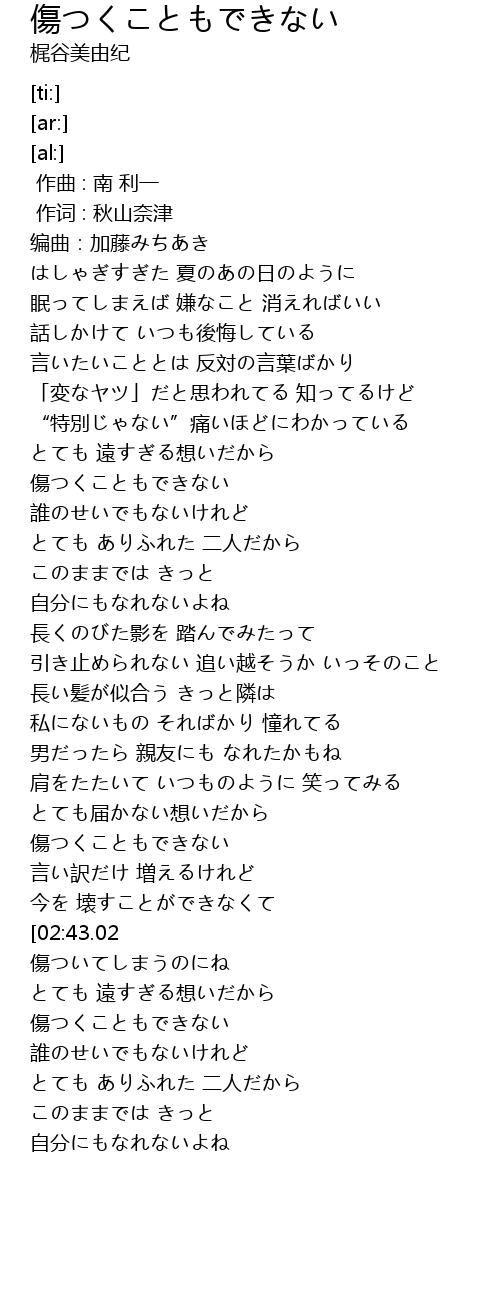 傷つくこともできない
梶谷美由纪
[ti:]
[ar:]
[al:]
作曲 : 南 利一
作词 : 秋山奈津
编曲：加藤みちあき
はしゃぎすぎた 夏のあの日のように
眠ってしまえば 嫌なこと 消えればいい
話しかけて いつも後悔している
言いたいこととは 反対の言葉ばかり
「変なヤツ」だと思われてる 知ってるけど
“特別じゃない”痛いほどにわかっている
とても 遠すぎる想いだから
傷つくこともできない
誰のせいでもないけれど
とても ありふれた 二人だから
このままでは きっと
自分にもなれないよね
長くのびた影を 踏んでみたって
引き止められない 追い越そうか いっそのこと
長い髪が似合う きっと隣は
私にないもの そればかり 憧れてる
男だったら 親友にも なれたかもね
肩をたたいて いつものように 笑ってみる
とても届かない想いだから
傷つくこともできない
言い訳だけ 増えるけれど
今を 壊すことができなくて
[02:43.02
傷ついてしまうのにね
とても 遠すぎる想いだから
傷つくこともできない
誰のせいでもないけれど
とても ありふれた 二人だから
このままでは きっと
自分にもなれないよね